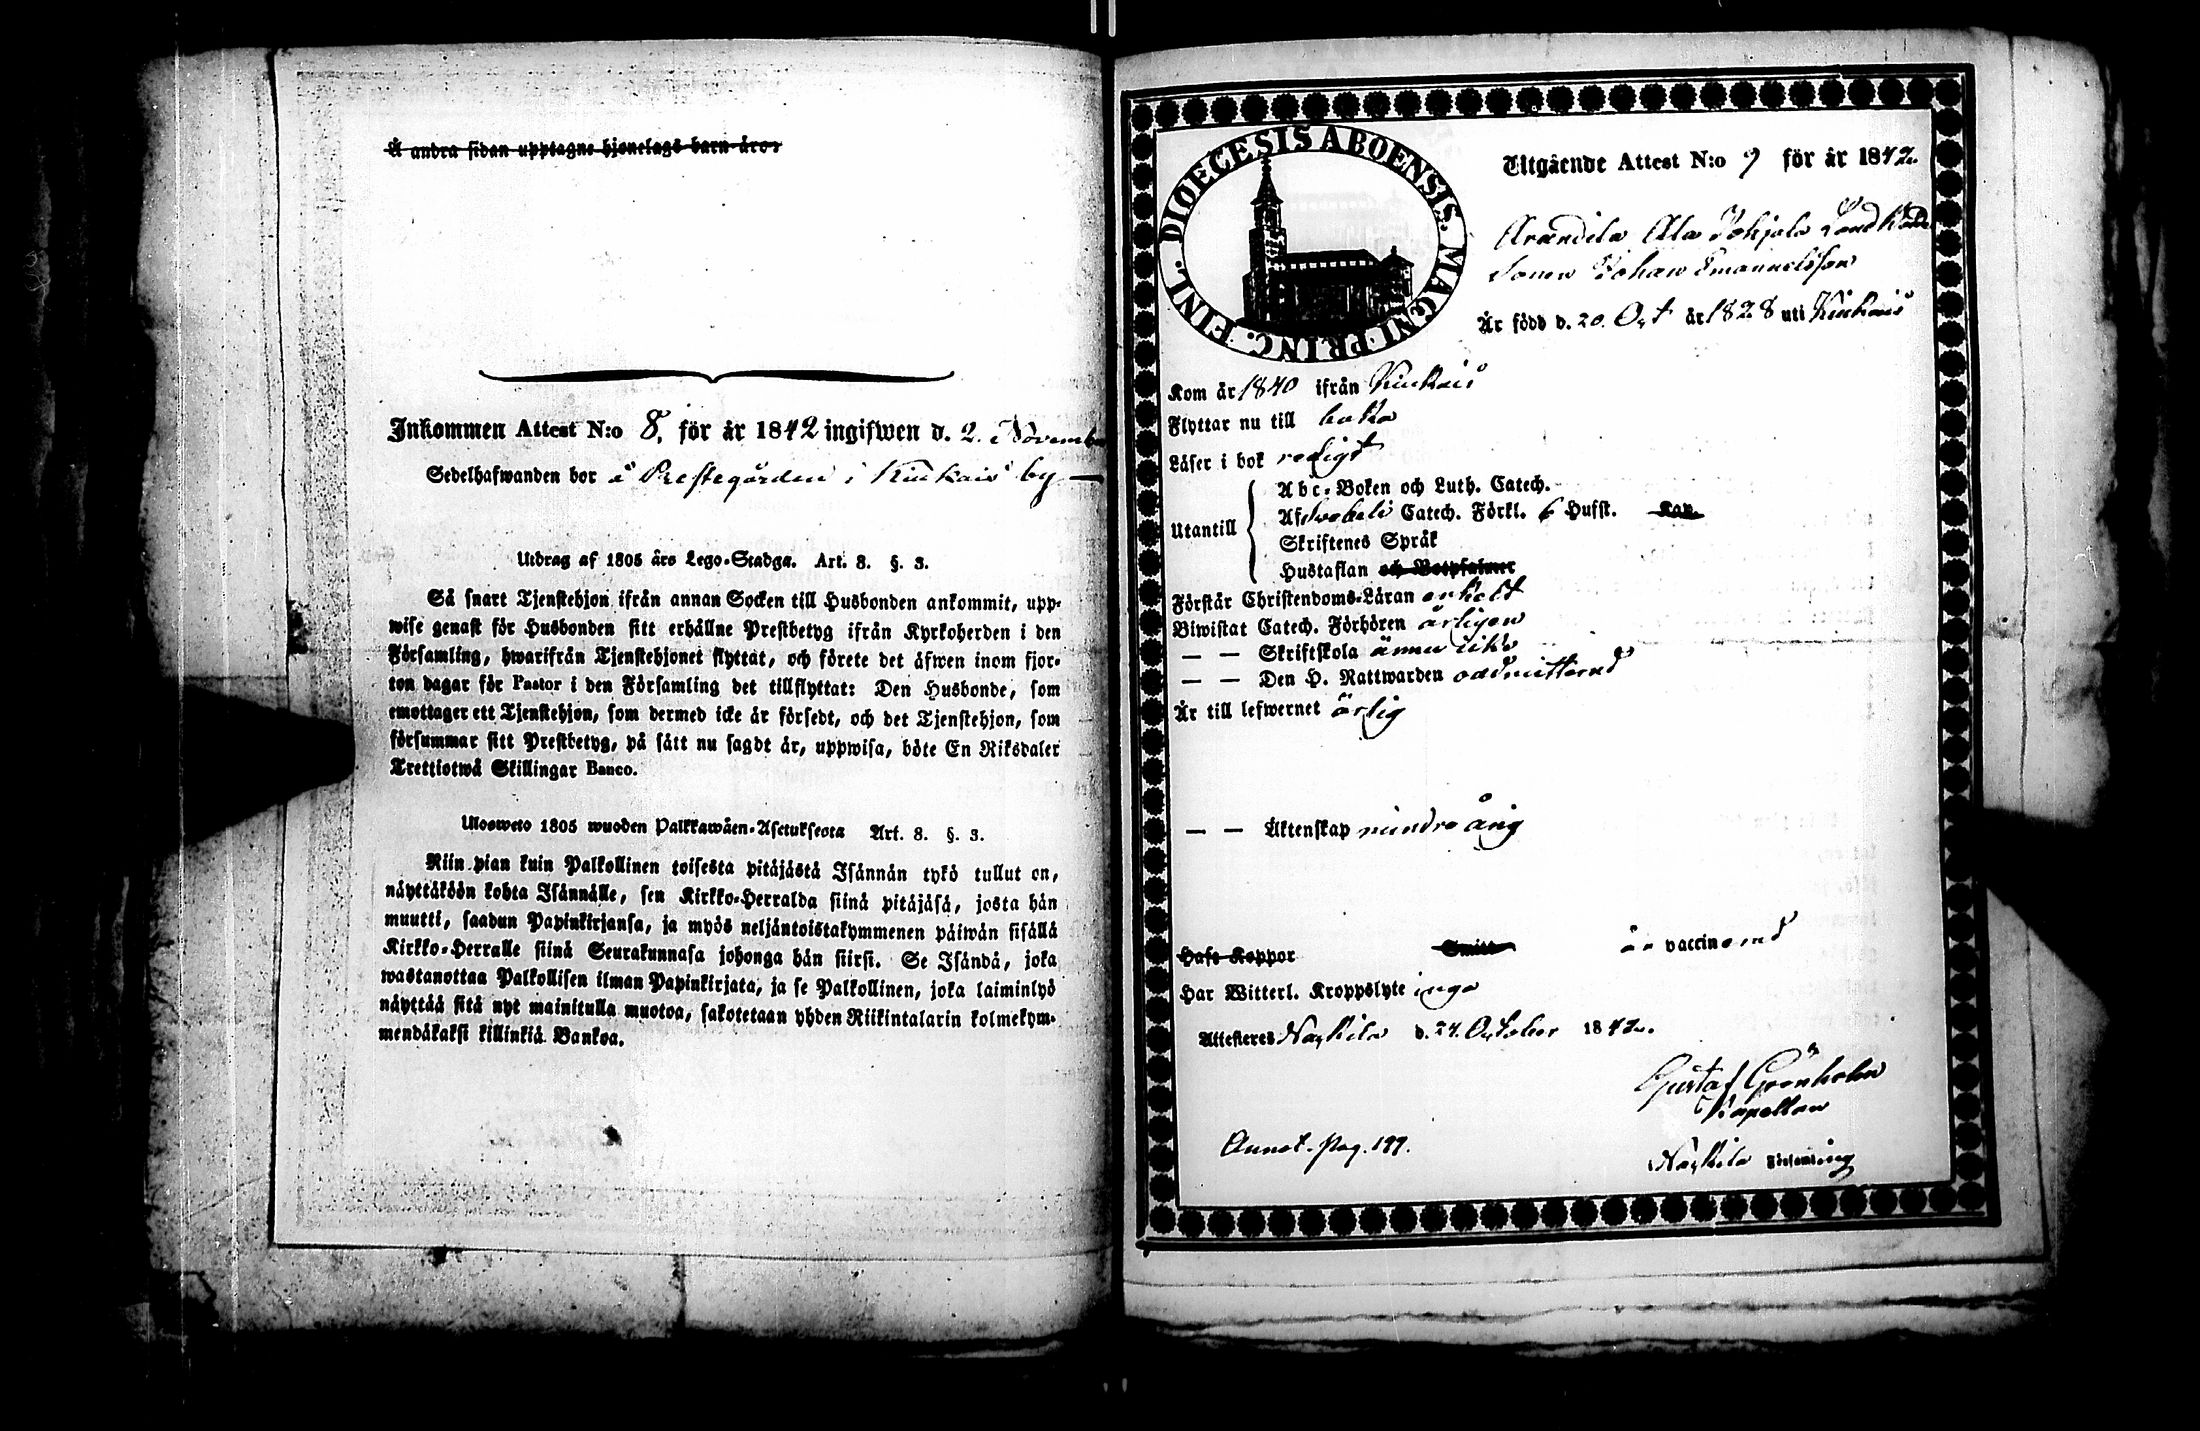 Å andra sidan upptagne hjonelags barn äro:
Inkommen Attest N:o 8. för år 1842 ingifwen d. 2. November
Sedelhafwanden bor å Prestegården i Kiukais by —
Utdrag af 1805 års Lego-Stadga. Art. 8. §. 3.
Så snart Tjenstehjon ifrån annan Socken till Husbonden ankommit, upp-
wise genast för Husbonden sitt erhållne Prestbetyg ifrån Kyrkoherden i den
Församling, hwarifrån Tjenstehjonet flyttat, och förete det äfwen inom fjor-
ton dagar för Pastor i den Församling det tillflyttat: Den Husbonde, som
emottager ett Tjenstehjon, som dermed icke är försedt, och det Tjenstehjon, som
försummar sitt Prestbetyg, på sätt nu sagdt är, uppwisa, böte En Riksdaler
Trettiotwå Skillingar Banco.
Ulosweto 1805 wuoden Palkkawäen-Asetuksesta Art. 8. §. 3.
Niin pian kuin Palkollinen toisesta pitäjästä Isännän tykö tullut on,
näyttäköön kohta Isännälle, sen Kirkko-Herralda siinä pitäjäsä, josta hän
muutti, saadun Papinkirjansa, ja myös neljäntoistakymmenen päiwän sisällä
Kirkko-Herralle siinä Seurakunnasa johonga hän siirsi. Se Isändä, joka
wastanottaa Palkollisen ilman Papinkirjata, ja se Palkollinen, joka laiminlyö
näyttää sitä nyt mainitulla muotoa, sakotetaan yhden Riikintalarin kolmekym-
mendäkaksi killinkiä Bankoa.
DIOECESIS ABOENSIS. MAGNI PRINC. FINL.
Utgående Attest N:o 9 för år 1842.
Arandila Ala Pohjala
Sonen Johan Emanuelsson
Är född d. 20. Oct är 1828 uti Kiukais
Kom år 1840 ifrån Kiukais
Flyttar nu till baka
Läser i bok redigt
Utantill
Abc-Boken och Luth. Catech.
Af Swebelii Catech. Förkl. 6 Hufst. Kap.
Skriftenes Språk
Hustaflan och Botpsalmer
Förstår Christendoms-Läran enkelt
Biwistat Catech. Förhören årligen
— — Skriftskola ännu icke
— — Den H. Nattwarden oadmitterad
Är till lefwernet ärlig
— — Äktenskap mindreårig
Haft Koppor Smitt är vaccinerad
Har Witterl. Kroppslyte inga
Attesteres Nackila d. 24. October 1842.
Gustaf Grönholm
Kapellan
Nackila Församling
Annot. pag. 197.